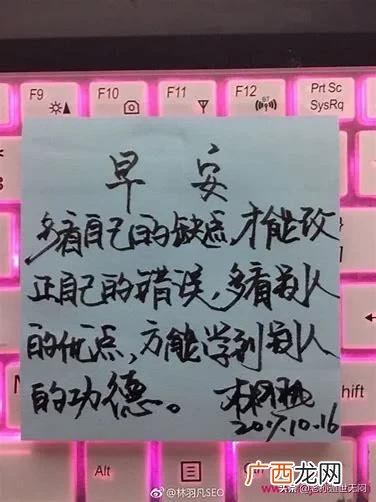 F9
F10
F11
F12
Prt Sc
SysRq
早安
多看自己的缺点,才能改
正自己的错误,多看别人
的优点,方能学到别人
的功德。
2017.10.16
Alt
@林羽凡SEO
广西龙网